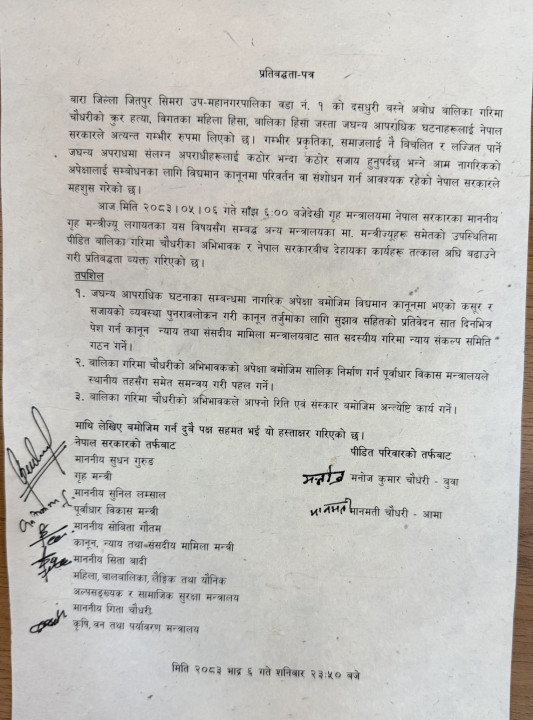 प्रतिबद्धता-पत्र
बारा जिल्ला जितपुर सिमरा उप-महानगरपालिका वडा नं. १ को दसधुरी बस्ने अबोध बालिका गरिमा
चौधरीको कुर हत्या, विगतका महिला हिंसा, बालिका हिंसा जस्ता जघन्य आपराधिक घटनाहरूलाई नेपाल
सरकारले अत्यन्त गम्भीर रुपमा लिएको छ। गम्भीर प्रकृतिका, समाजलाई नै विचलित र लज्जित पार्ने
जघन्य अपराधमा संलग्न अपराधीहरूलाई कठोर भन्दा कठोर सजाय हुनुपर्दछ भन्ने आम नागरिकको
अपेक्षालाई सम्बोधनका लागि विद्यमान कानूनमा परिवर्तन वा संशोधन गर्न आवश्यक रहेको नेपाल सरकारले
महशुस गरेको छ।
आज मिति २०८३।०५।०६ गते साँझ ६:०० बजेदेखी गृह मन्त्रालयमा नेपाल सरकारका माननीय
गृह मन्त्रीज्यू लगायतका यस विषयसँग सम्बद्ध अन्य मन्त्रालयका मा. मन्त्रीज्यूहरू समेतको उपस्थितिमा
पीडित बालिका गरिमा चौधरीका अभिभावक र नेपाल सरकारबीच देहायका कार्यहरू तत्काल अघि बढाउने
गरी प्रतिबद्धता व्यक्त गरिएको छ।
तपशिल
१. जघन्य आपराधिक घटनाका सम्बन्धमा नागरिक अपेक्षा बमोजिम विद्यमान कानूनमा भएको कसूर र
सजायको व्यवस्था पुनरावलोकन गरी कानून तर्जुमाका लागि सुझाव सहितको प्रतिवेदन सात दिनभित्र
पेश गर्न कानून न्याय तथा संसदीय मामिला मन्त्रालयबाट सात सदस्यीय गरिमा न्याय संकल्प समिति
गठन गर्ने।
२. बालिका गरिमा चौधरीको अभिभावकको अपेक्षा बमोजिम सालिक निर्माण गर्न पूर्वाधार विकास मन्त्रालयले
स्थानीय तहसँग समेत समन्वय गरी पहल गर्ने।
३. बालिका गरिमा चौधरीको अभिभावकले आफ्नो रिति एवं संस्कार बमोजिम अन्त्येष्टि कार्य गर्ने।
माथि लेखिए बमोजिम गर्न दुबै पक्ष सहमत भई यो हस्ताक्षर गरिएको छ।
नेपाल सरकारको तर्फबाट
माननीय सुधन गुरुङ
गृह मन्त्री
माननीय सुनिल लम्साल
पूर्वाधार विकास मन्त्री
माननीय सोविता गौतम
कानून, न्याय तथा संसदीय मामिला मन्त्री
माननीय सिता वादी
महिला, बालबालिका, लैङ्गिक तथा यौनिक
अल्पसङ्ख्यक र सामाजिक सुरक्षा मन्त्रालय
माननीय गिता चौधरी
कृषि, वन तथा पर्यावरण मन्त्रालय
पीडित परिवारको तर्फबाट
मनोज कुमार चौधरी - बुवा
मानमती मानमती चौधरी - आमा
मिति २०८३ भाद्र ६ गते शनिबार २३:५० बजे